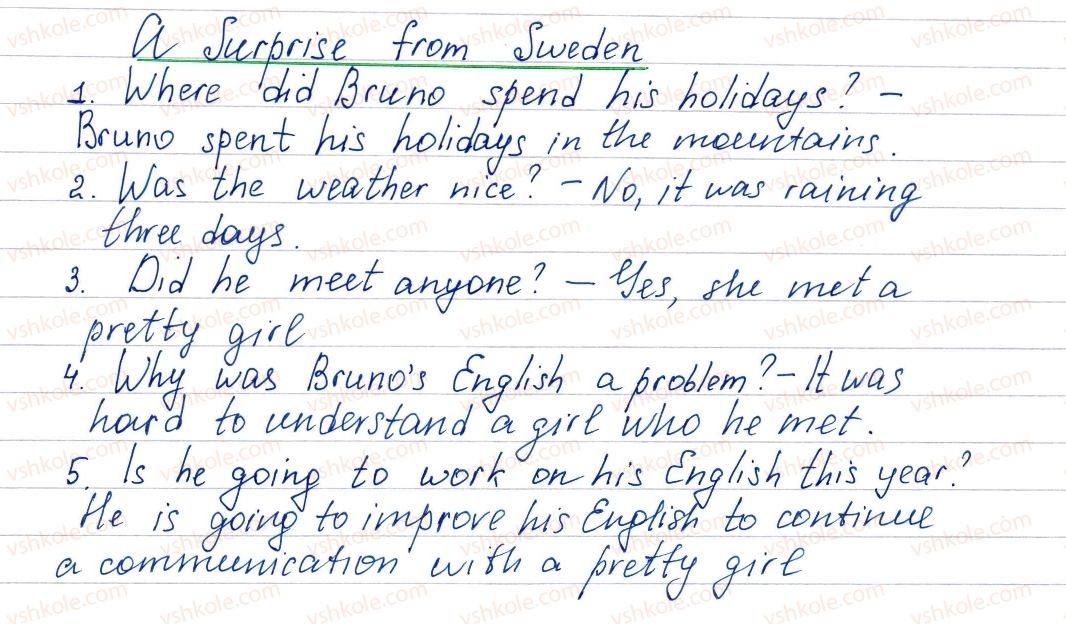 A Surprise from Sweden
1. Where did Bruno spend his holidays? –
Bruno spent his holidays in the mountains.
2. Was the weather nice? – No, it was raining
three days.
3. Did he meet anyone? – Yes, she met a
pretty girl
4. Why was Bruno's English a problem? – It was
hard to understand a girl who he met.
5. Is he going to work on his English this year?
He is going to improve his English to continue
a communication with a pretty girl